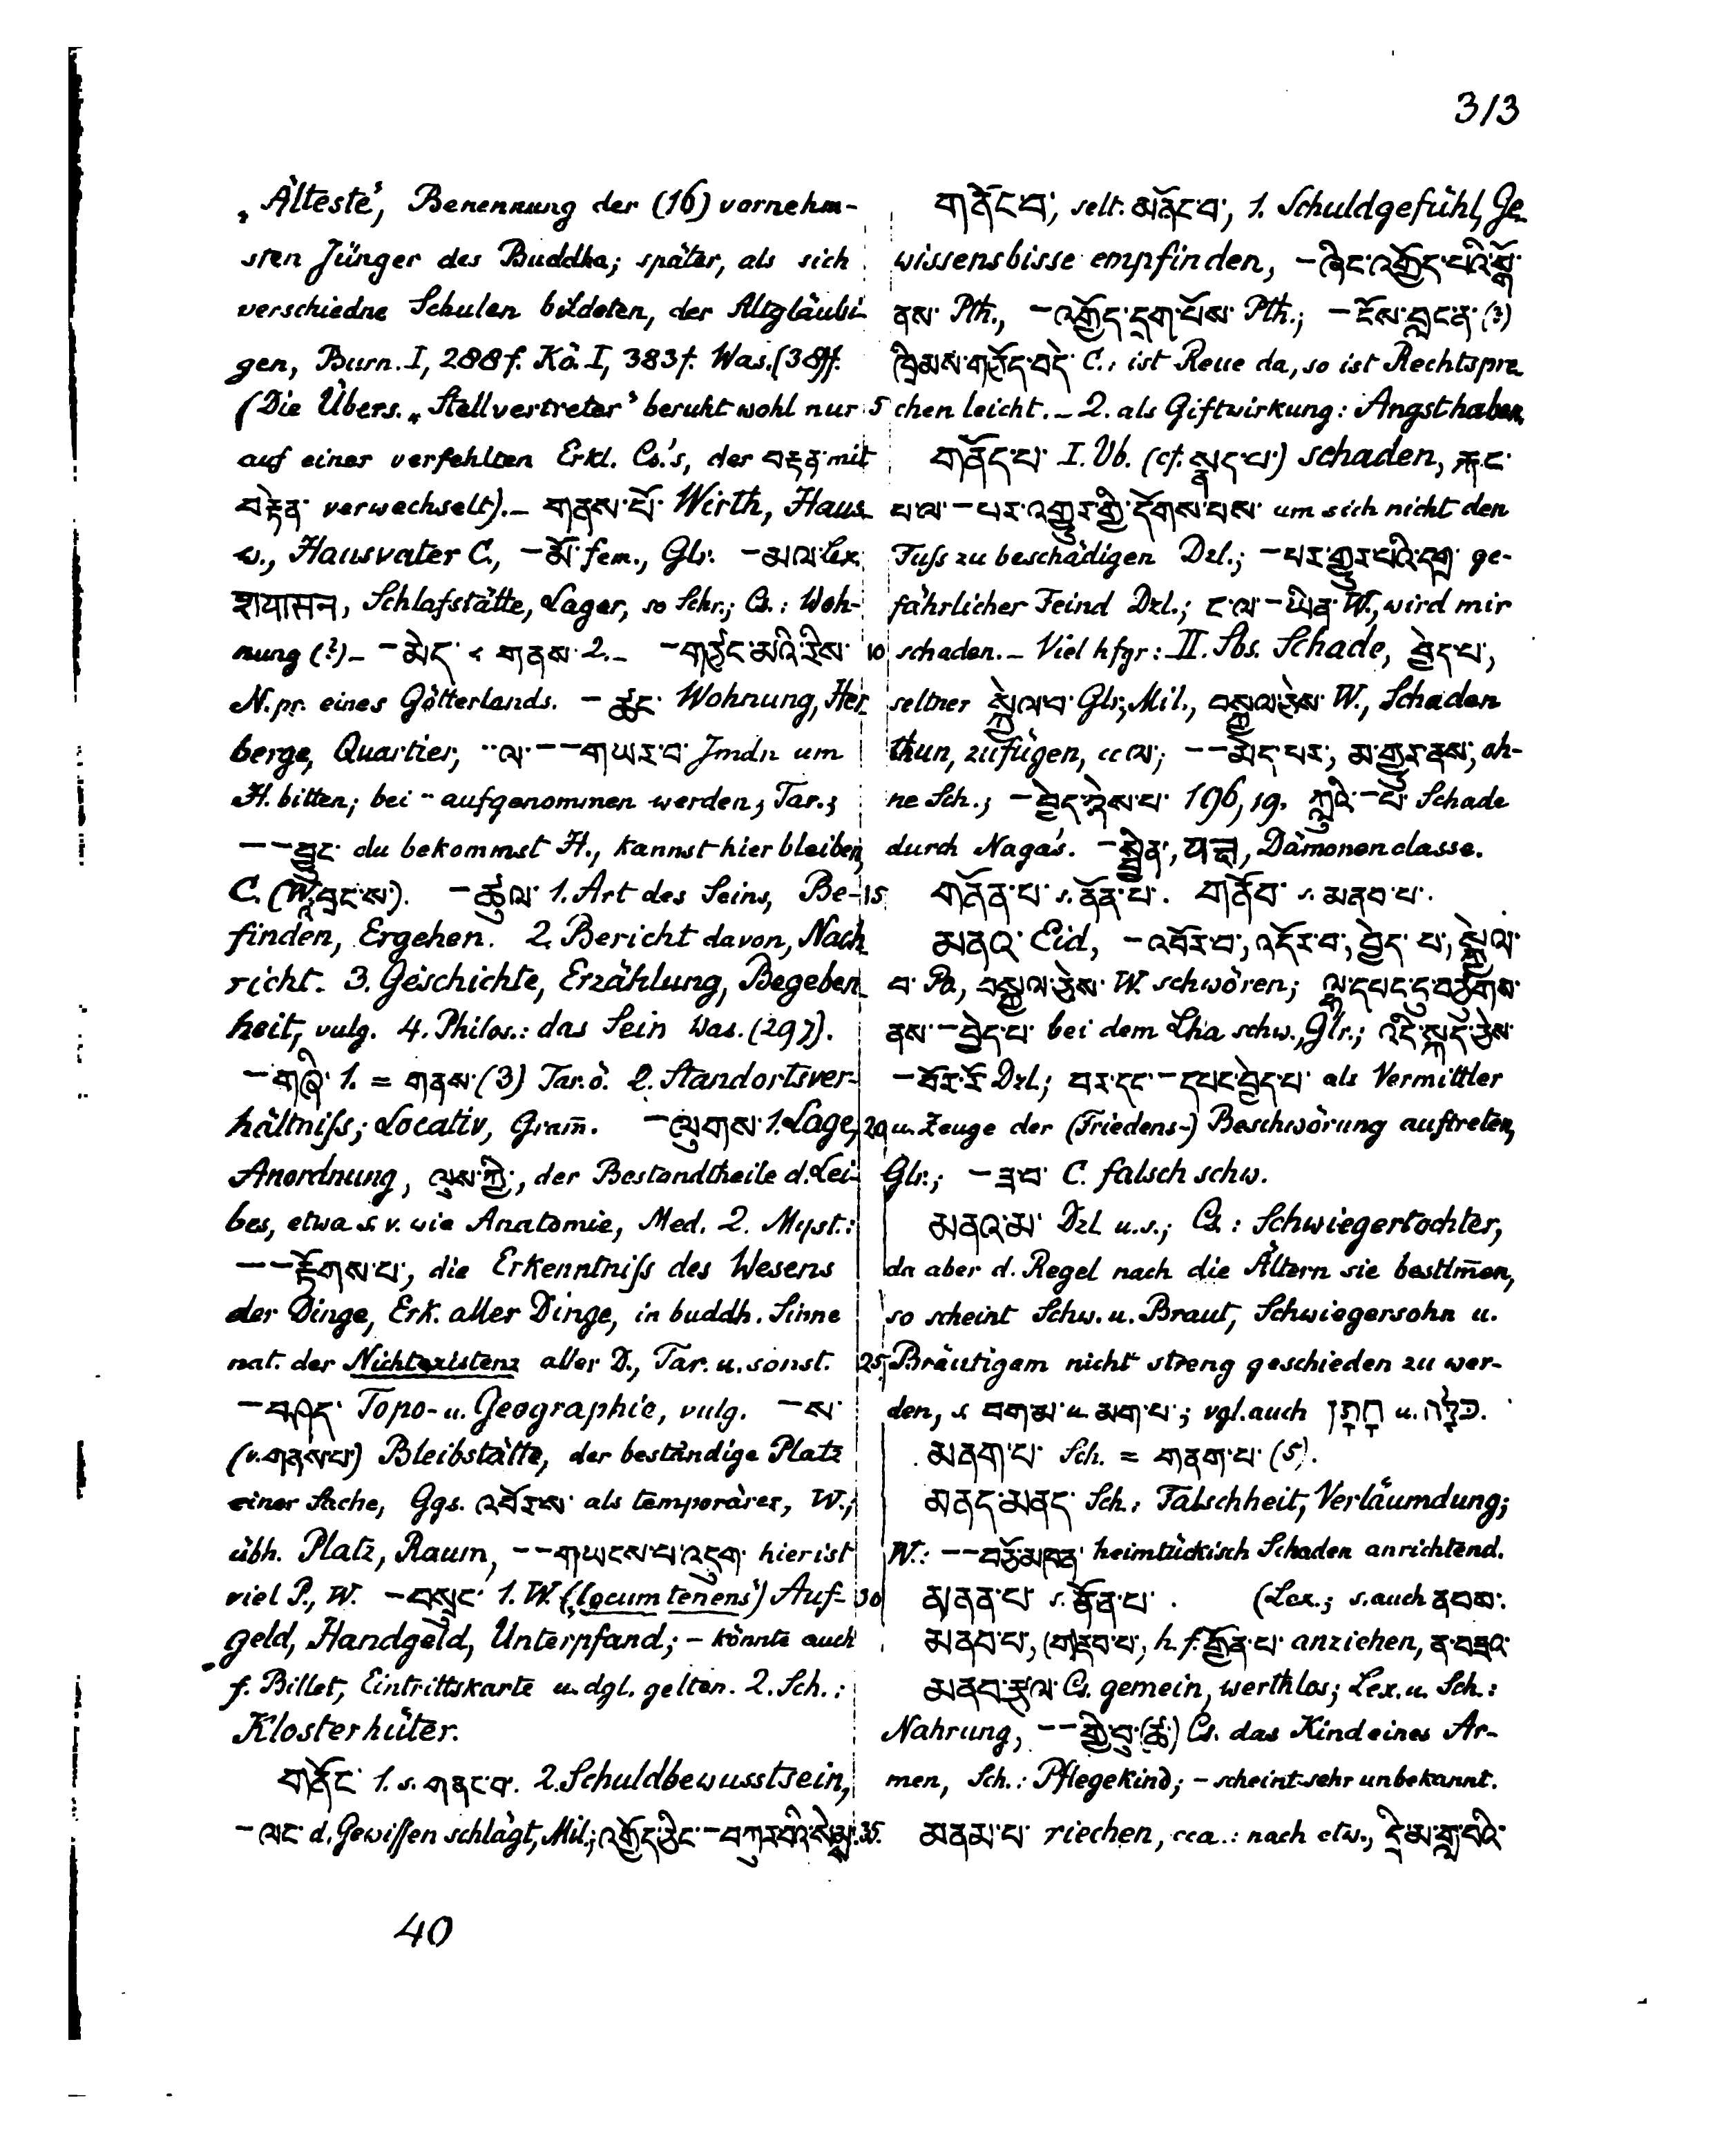 313
„Älteste’, Benennung der (16) vornehm-
sten Jünger des Buddha; später, als sich
verschiedne Schulen bildeten, der Altgläubi-
gen, Burn. I, 288f. Kö. I, 383f. Was. (38)ff.
(Die Übers. „Stellvertreter’ beruht wohl nur 5
auf einer verfehlten Erkl. Cs.'s, der བརྟན་ mit
བརྟེན་ verwechselt). – གནས་པོ་ Wirth, Haus-
w., Hausvater C., –མོ་ fem., Glr. –མལ་ Lex.
शयासन, Schlafstätte, Lager, so Schr.; Cs.: Woh-
nung (?) – –མེད་ < གནས་ 2. – –གཙང་མའི་རིས་ 10
N. pr. eines Götterlands. –ཚང་ Wohnung, Her-
berge, Quartier, ··ལ་––གཡར་བ་ Jmdn um
H. bitten; bei ·· aufgenommen werden, Tar.;
––བྱུང་ du bekommst H., kannst hier bleiben,
C. (W. བྲང་ས་). –ཚུལ་ 1. Art des Seins, Be- 15
finden, Ergehen. 2. Bericht davon, Nach-
richt. 3. Geschichte, Erzählung, Begeben-
heit, vulg. 4. Philos.: das Sein Was. (297).
–གཞི་ 1. = གནས་ (3) Tar. ö. 2. Standortsver-
hältniſs; Locativ, Gram̄. –ལུགས་ 1. Lage, 20
Anordnung, ལུས་ཀྱི་, der Bestandtheile d. Lei-
bes, etwa s. v. wie Anatomie, Med. 2. Myst.:
––རྟོགས་པ་, die Erkenntniſs des Wesens
der Dinge, Erk. aller Dinge, in buddh. Sinne
nat. der Nichtexistenz aller D., Tar. u. sonst. 25
–བཤད་ Topo- u. Geographie, vulg. –ས་
(v. གནས་པ་) Bleibstätte, der beständige Platz
einer Sache, Ggs. འབོར་ས་ als temporärer, W.;
übh. Platz, Raum, ––གཡངས་པ་འདུག་ hier ist
viel P., W. –བསྲུང་ 1. W. („locum tenens’) Auf- 30
geld, Handgeld, Unterpfand; – könnte auch
f. Billet, Eintrittskarte u. dgl. gelten. 2. Sch.:
Klosterhüter.
གནོང་ 1. s. གནང་བ་. 2. Schuldbewusstsein,
–ལང་ d. Gewiſſen schlägt, Mil.; འགྱོད་ཅིང་–བཀུར་བའི་ 35.
གནོང་བ་, selt. མནོང་བ་, 1. Schuldgefühl, Ge-
wissensbisse empfinden, –ཞིང་འགྱོད་པའི་སྒོ་
ནས་ Pth., –འགྱོད་དྲག་པོས་ Pth.; –ངོས་བླང་ན་ (?)
ཁྲིམས་གཅོད་བདེ་ C.: ist Reue da, so ist Rechtspre-
chen leicht. – 2. als Giftwirkung: Angst haben.
གནོད་པ་ I. Vb. (cf. སྣད་པ་) schaden, རྐང་
པ་ལ་–པར་འགྱུར་གྱི་དོགས་པས་ um sich nicht den
Fuſs zu beschädigen Dzl.; –པར་གྱུར་པའི་དགྲ་ ge-
fährlicher Feind Dzl.; ང་ལ་–ཡིན་ W., wird mir
schaden. – Viel hfgr: II. Sbs. Schade, བྱེད་པ་,
seltner སྐྱེལ་བ་ Glr., Mil., བསྐྱལ་ཅེས་ W., Schaden
thun, zufügen, cc ལ་; ––མེད་པར་, མ་གྱུར་ནས་, oh-
ne Sch.; –བྱེད་ཉེས་པ་ 196, 19. ཀླུའི་–པ་ Schade
durch Naga's. –སྦྱིན་, यक्ष, Dämonenclasse.
གནོན་པ་ s. ནོན་པ་. གནོབ་ s. མནབ་པ་.
མནའ་ Eid, –འབོར་བ་, འདོར་བ་, བྱེད་པ་, སྐྱེལ་
བ་ Pa, བསྐྱལ་ཅེས་ W. schwören; ལྷ་དཔང་དུ་བཙུགས་
ནས་–བྱེད་པ་ bei dem Lha schw., Glr.; འདི་སྐད་ཅེས་
–བོར་རོ་ Dzl.; བར་དང་–དཔང་བྱེད་པ་ als Vermittler
u. Zeuge der (Friedens-) Beschwörung auftreten,
Glr.; –ཟ་བ་ C. falsch schw.
མནའ་མ་ Dzl u. s.; Cs.: Schwiegertochter,
da aber d. Regel nach die Ältern sie bestim̄en,
so scheint Schw. u. Braut, Schwiegersohn u.
Bräutigam nicht streng geschieden zu wer-
den, s. བག་མ་ u. མག་པ་; vgl. auch חָתָן u. כַּלָּה.
མནག་པ་ Sch. = གནག་པ་ (5).
མནད་མནད་ Sch.: Falschheit, Verläumdung;
W.: ––བཅོ་མཁན་ heimtückisch Schaden anrichtend.
མནན་པ་ s. ནོན་པ་. (Lex.; s. auch ནབས་.
མནབ་པ་, (གནབ་པ་, h. f. གྱོན་པ་ anziehen, ན་བཟའ་
མནབ་རྩལ་ Cs. gemein, werthlos; Lex. u. Sch.:
Nahrung, ––གྱི་བུ་(ཚ་) Cs. das Kind eines Ar-
men, Sch.: Pflegekind; – scheint sehr unbekannt.
མནམ་པ་ riechen, cca.: nach etw., དྲི་མ་གླ་བའི་
40